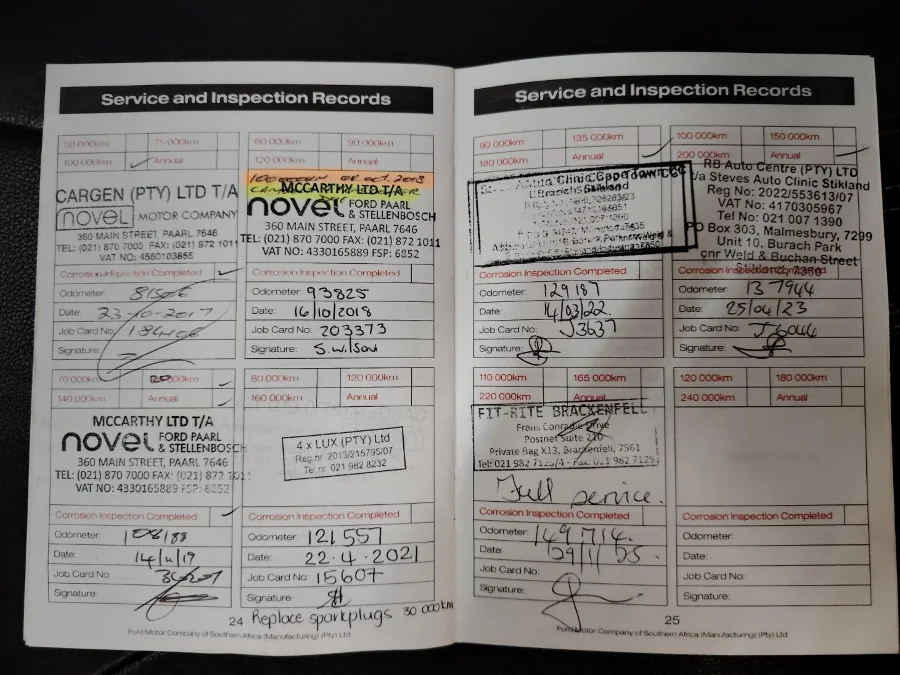 Service and Inspection Records
50 000km 75 000km
100 000km Annual
CARGEN (PTY) LTD T/A
novel MOTOR COMPANY
360 MAIN STREET, PAARL 7646
TEL: (021) 870 7000 FAX: (021) 872 1011
VAT NO: 4560103855
Corrosion Inspection Completed
Odometer:
Date: 23-10-2017
Job Card No:
Signature:
60 000km 90 000km
120 000km Annual
MCCARTHY LTD T/A
novel FORD PAARL
& STELLENBOSCH
360 MAIN STREET, PAARL 7646
TEL: (021) 870 7000 FAX: (021) 872 1011
VAT NO: 4330165889 FSP: 6852
Corrosion Inspection Completed
Odometer: 93825
Date: 16/10/2018
Job Card No: 203373
Signature: S.wilson
70 000km
140 000km Annual
MCCARTHY LTD T/A
novel FORD PAARL
& STELLENBOSCH
360 MAIN STREET, PAARL 7646
TEL: (021) 870 7000 FAX: (021) 872 1011
VAT NO: 4330165889 FSP: 6852
Corrosion Inspection Completed
Odometer:
Date: 14/11/19
Job Card No:
Signature:
80 000km 120 000km
160 000km Annual
4 x LUX (PTY) Ltd
Reg.nr 2013/215795/07
Tel.nr 021 982 8232
Corrosion Inspection Completed
Odometer: 121 557
Date: 22.4.2021
Job Card No: 15607
Signature:
24 Replace sparkplugs 30 000km
Ford Motor Company of Southern Africa (Manufacturing) (Pty) Ltd
Service and Inspection Records
90 000km 135 000km
180 000km Annual
Corrosion Inspection Completed
Odometer: 129187
Date: 14/03/22.
Job Card No: J3637
Signature:
100 000km 150 000km
200 000km Annual
RB Auto Centre (PTY) LTD
t/a Steves Auto Clinic Stikland
Reg No: 2022/553613/07
VAT No: 4170305967
Tel No: 021 007 1390
PO Box 303, Malmesbury, 7299
Unit 10, Burach Park
cnr Weld & Buchan Street
Stikland, 7350
Corrosion Inspection Completed
Odometer: 137944
Date: 25/04/23
Job Card No:
Signature:
110 000km 165 000km
220 000km Annual
FIT-RITE BRACKENFELL
Frans Conradie Drive
Postnet Suite 210
Private Bag X13, Brackenfell, 7561
Tel: 021 982 7125/4 - Fax: 021 982 7125
Full service.
Corrosion Inspection Completed
Odometer: 149 714.
Date:
Job Card No:
Signature:
120 000km 180 000km
240 000km Annual
Corrosion Inspection Completed
Odometer:
Date:
Job Card No:
Signature:
25
Ford Motor Company of Southern Africa (Manufacturing) (Pty) Ltd